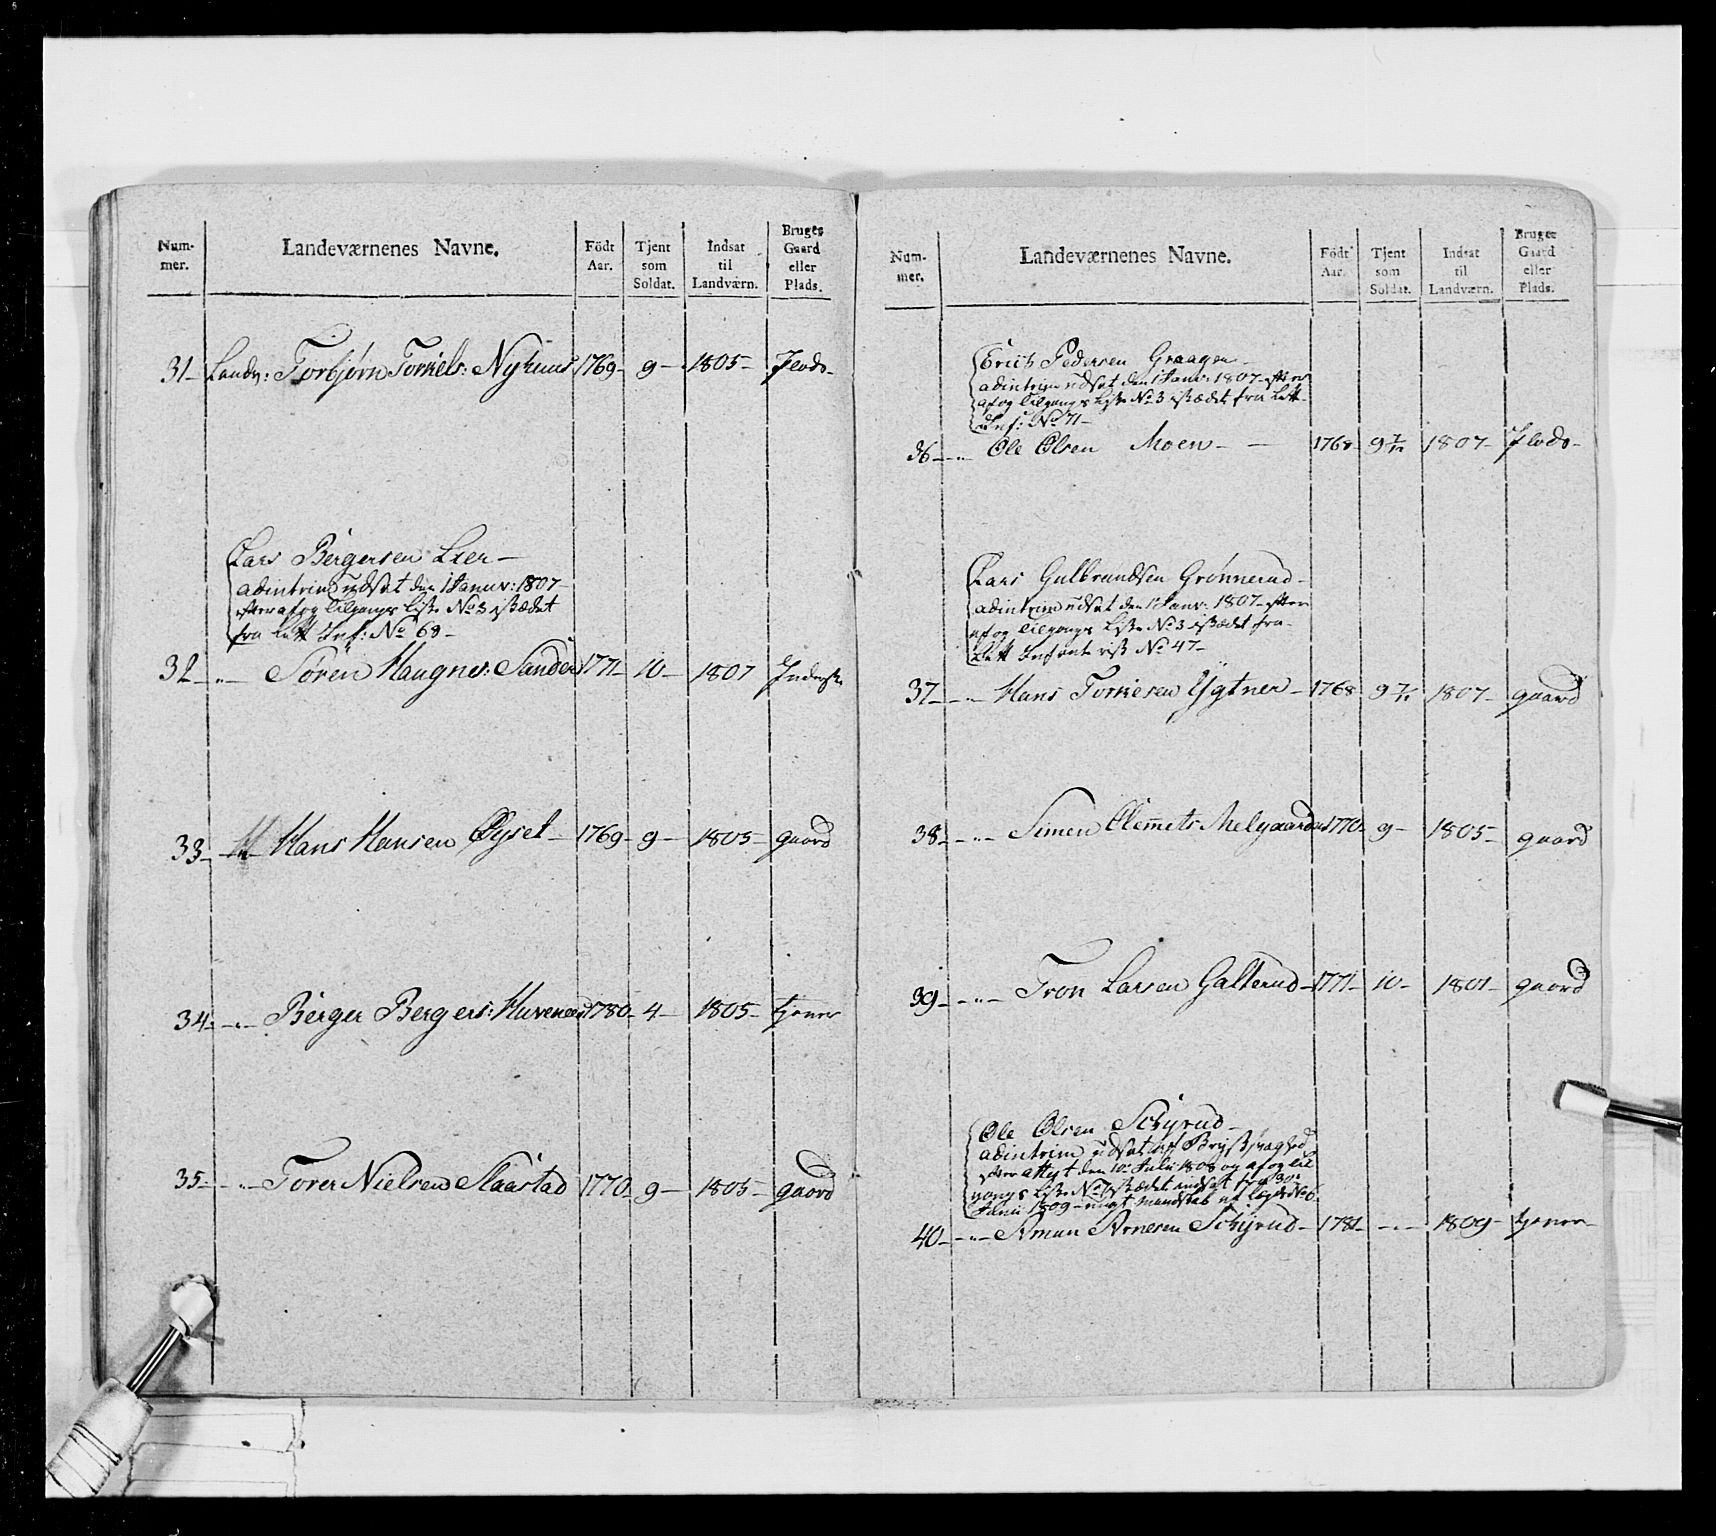 Num-
mer.
Landeværnenes Navne.
Födt
Aar.
Tjent
som
Soldat.
Indsat
til
Landværn.
Bruges
Gaard
eller
Plads.
31- Landv: Torbjørn Torkels: Nyhuus 1769- 9- 1805- Plads-
Lars Bergersen Lier-
ad intrim udsat den 1 Janur: 1807-
efter af og tilgangs Liste No 3 istædet
fra Lett Inf: No 68-
32 -"- Søren Haugner: Sanden 1771- 10- 1807 Inderste
33- Hans Hansen Øyset- 1769- 9- 1805- gaard
34- -"- Berger Bergers: 1780- 4- 1805- tjener
35- -"- Torer Nielsen Slaastad 1770- 9- 1805- gaard
Num-
mer.
Landeværnenes Navne.
Födt
Aar.
Tjent
som
Soldat.
Indsat
til
Landværn.
Bruger
Gaard
eller
Plads.
Erich Pedersen Graagen-
ad intrim udsat den 1 Janr: 1807- efter
af og tilgangs Liste No 3 istædet fra Lett-
Inf: No 71-
36- -"- Ole Olsen Moen- - 1768- 9 7/12 1807- Plads-
Lars Gulbrandsen Grønnerud-
ad intrim udsat den 1 Janr: 1807- efter
af og tilgangs Liste No 3 istædet fra-
Lett No 47-
37- -"- Hans Torkesen Ygtner- 1768- 9 7/12 1807- gaard
38- -"- Simen Clemets Melgaarden 1770- 9- 1805- gaard
39- -"- Tron Larsen Galterud- 1771- 10- 1801- gaard
Ole Olsen Schyrud-
ad intrim udsat
efter attest den 10de Julii 1808 og af og til
gangs Liste istædet indsat fra 30te
Junii 1809- ungt Mandskab
40- -"- Aman Arnesen Schyrud- 1781- -"- 1809- tjener-